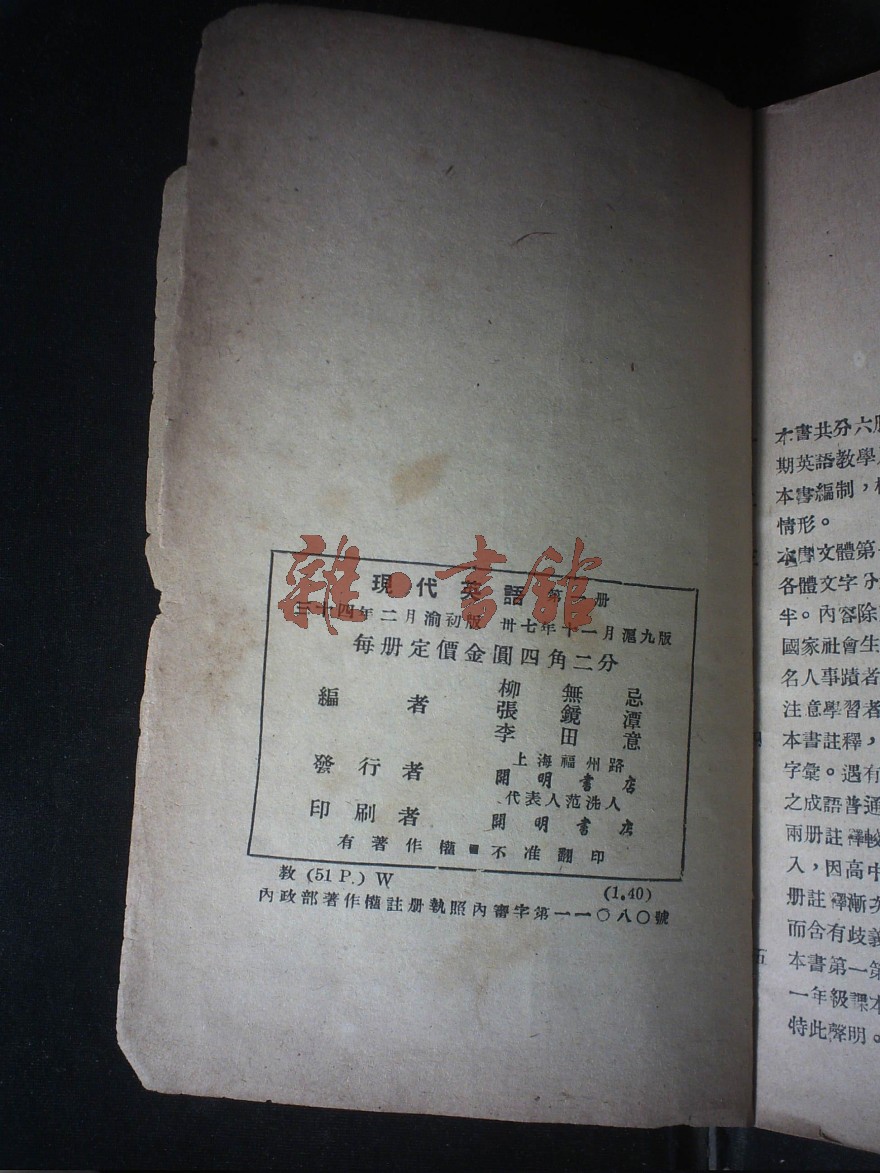 現代英語 第 册
三十四年二月渝初版 卅七年十一月滬九版
每册定價金圓四角二分
編者 柳無忌
張鏡潭
李田意
發行者 上海福州路
開明書店
代表人范洗人
印刷者 開明書店
有著作權 不准翻印
教 (51 P.) W (1.40)
內政部著作權註册執照內審字第一一〇八〇號
雜·書館
本書共分六
期英語教學
本書編制,
情形。
本書文體第
各體文字分
半。內容除
國家社會生
名人事蹟者
注意學習者
本書註釋,
字彙。遇有
之成語普通
兩册註釋較
入,因高中
册註釋漸
而含有歧義
五
本書第一第
一年級課本
特此聲明。